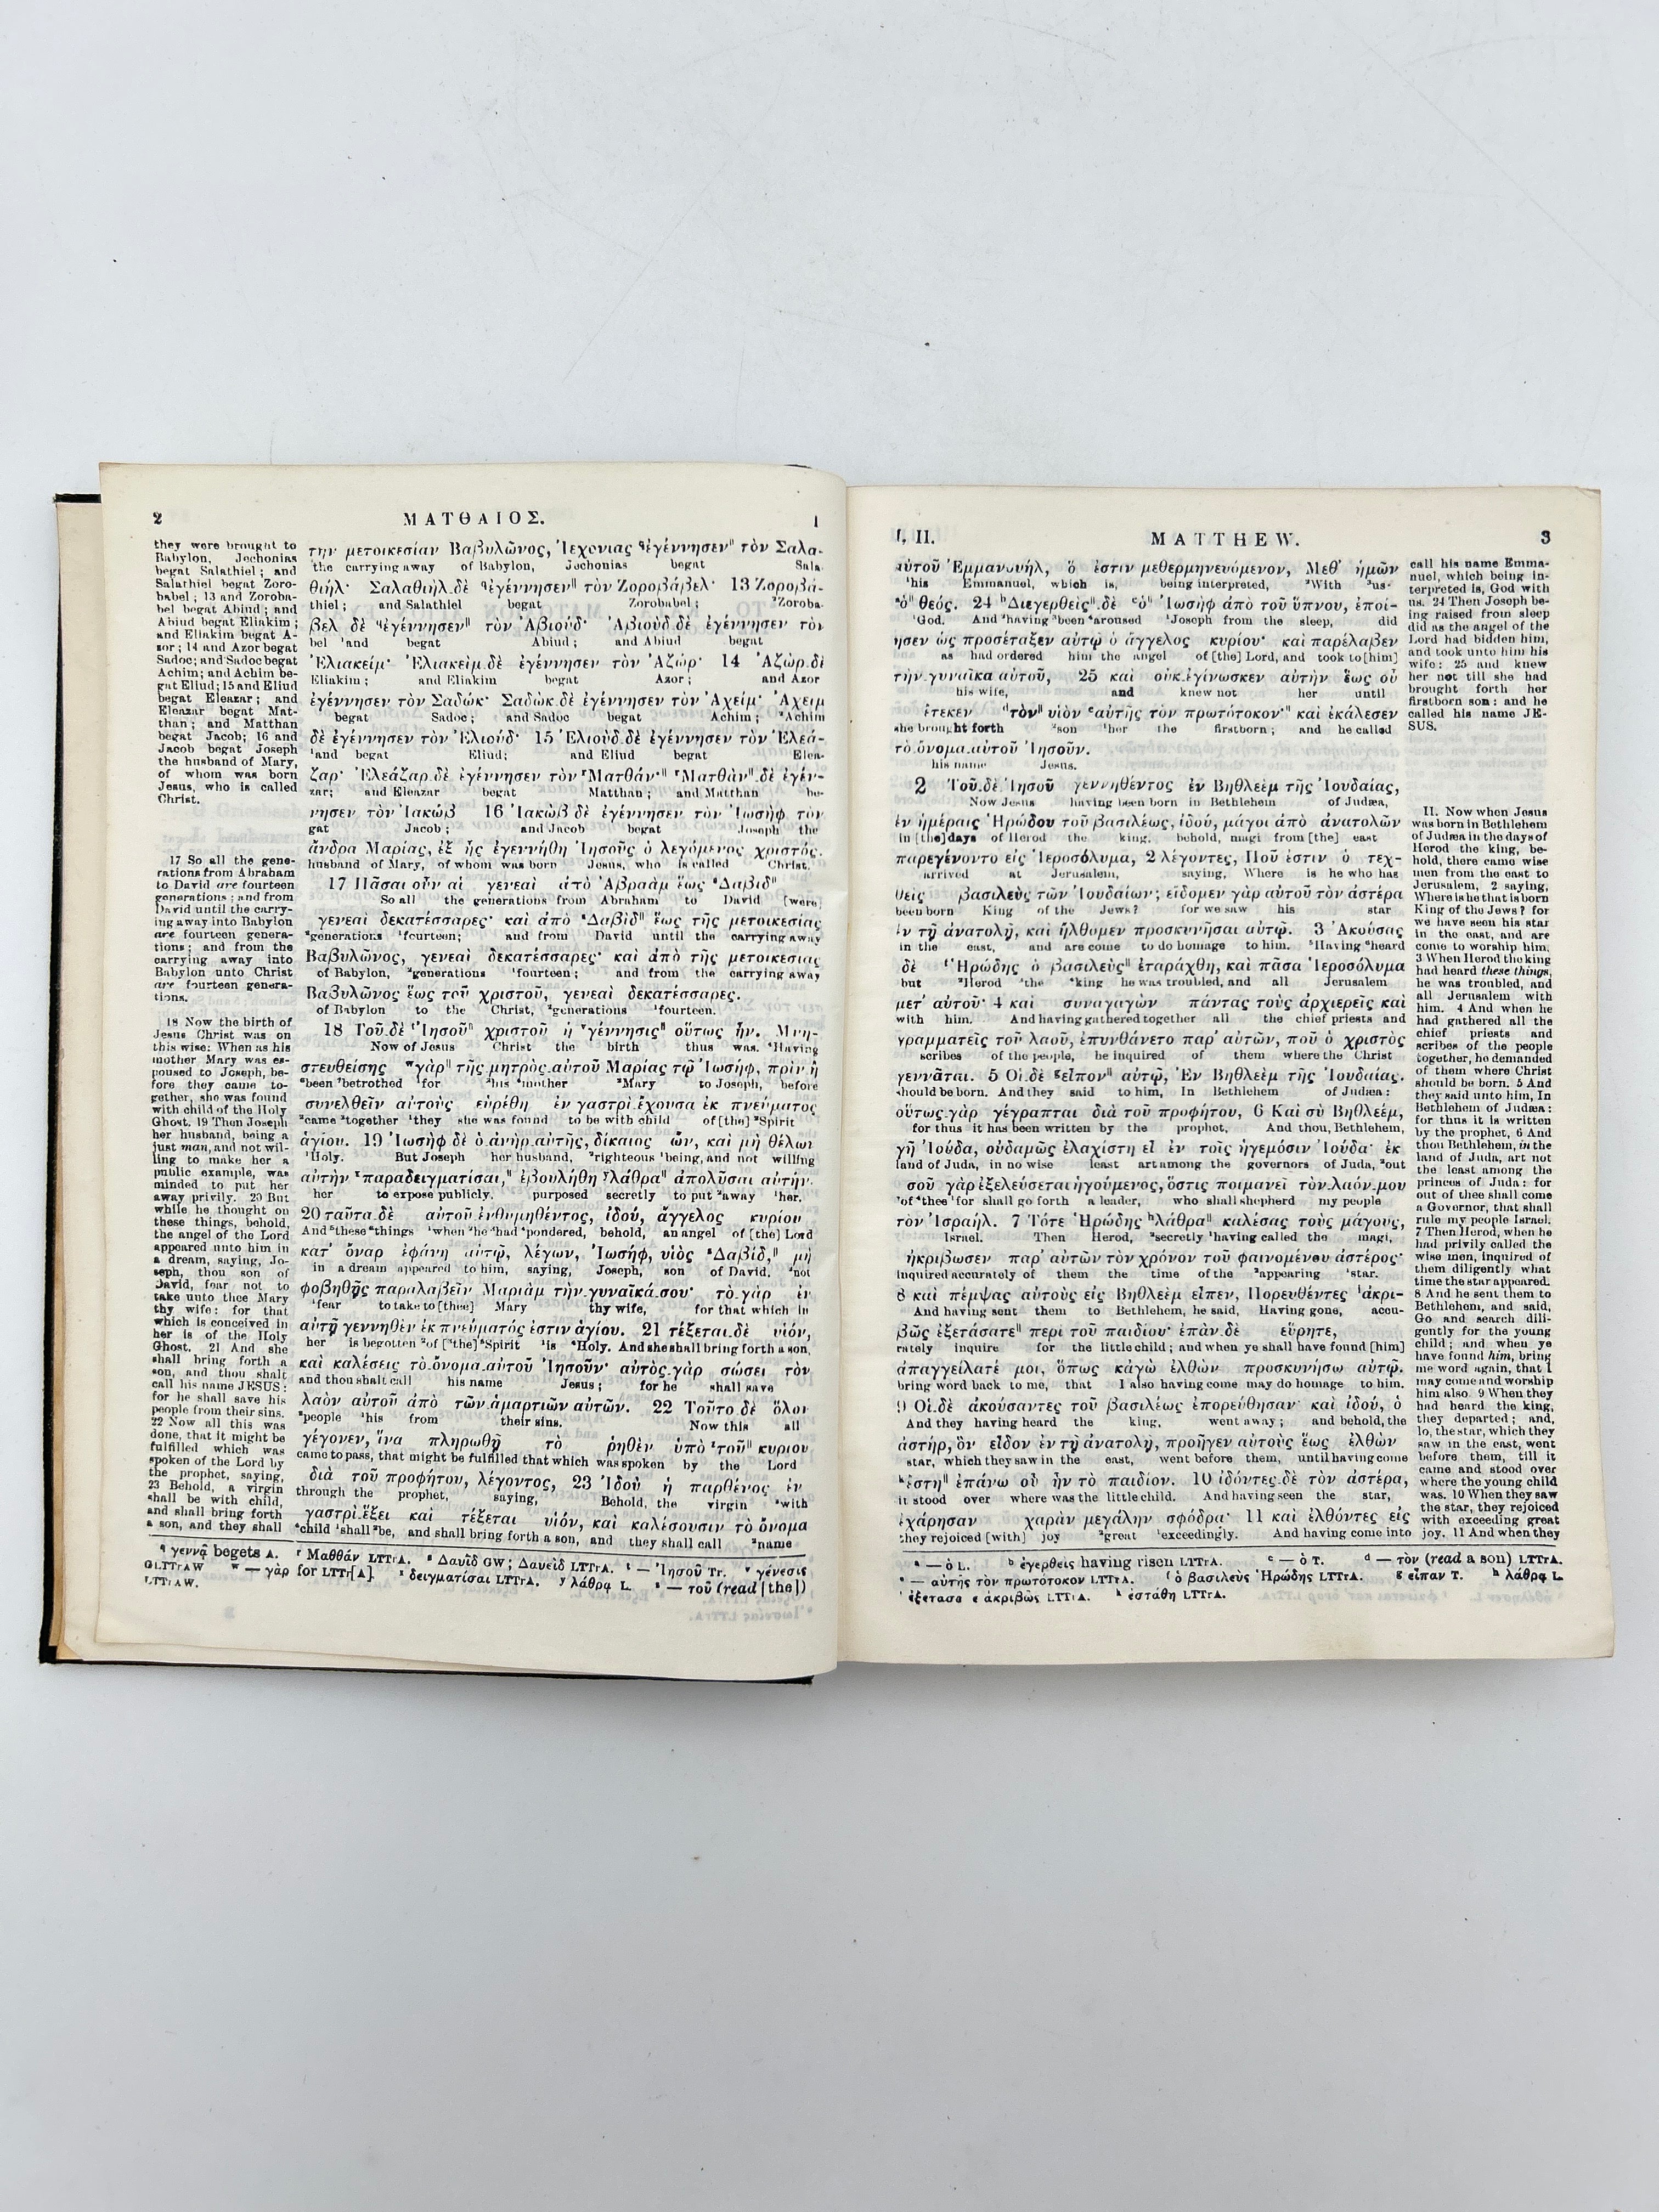 2
ΜΑΤΘΑΙΟΣ.
I
they were brought to
Babylon, Jechonias
begat Salathiel; and
Salathiel begat Zoro-
babel; 13 and Zoroba-
bel begat Abiud; and
Abiud begat Eliakim;
and Eliakim begat A-
zor; 14 and Azor begat
Sadoc; and Sadoc begat
Achim; and Achim be-
gat Eliud; 15 and Eliud
begat Eleazar; and
Eleazar begat Mat-
than; and Matthan
begat Jacob; 16 and
Jacob begat Joseph
the husband of Mary,
of whom was born
Jesus, who is called
Christ.
17 So all the gene-
rations from Abraham
to David are fourteen
generations; and from
David until the carry-
ing away into Babylon
are fourteen genera-
tions; and from the
carrying away into
Babylon unto Christ
are fourteen genera-
tions.
18 Now the birth of
Jesus Christ was on
this wise: When as his
mother Mary was es-
poused to Joseph, be-
fore they came to-
gether, she was found
with child of the Holy
Ghost. 19 Then Joseph
her husband, being a
just man, and not wil-
ling to make her a
public example, was
minded to put her
away privily. 20 But
while he thought on
these things, behold,
the angel of the Lord
appeared unto him in
a dream, saying, Jo-
seph, thou son of
David, fear not to
take unto thee Mary
thy wife: for that
which is conceived in
her is of the Holy
Ghost. 21 And she
shall bring forth a
son, and thou shalt
call his name JESUS:
for he shall save his
people from their sins.
22 Now all this was
done, that it might be
fulfilled which was
spoken of the Lord by
the prophet, saying,
23 Behold, a virgin
shall be with child,
and shall bring forth
a son, and they shall
την μετοικεσίαν Βαβυλῶνος, Ἰεχονιας ᑫἐγέννησεν‖ τὸν Σαλα-
the carrying away of Babylon, Jechonias begat Sala-
θιήλ· Σαλαθιὴλ.δὲ ᑫἐγέννησεν‖ τὸν Ζοροβάβελ· 13 Ζοροβά-
thiel; and Salathiel begat Zorobabel; ²Zoroba-
βελ δὲ ᑫἐγέννησεν‖ τὸν Ἀβιούδ· Ἀβιοὺδ.δὲ ἐγέννησεν τὸν
bel ¹and begat Abiud; and Abiud begat
Ἐλιακείμ· Ἐλιακεὶμ.δὲ ἐγέννησεν τὸν Ἀζώρ· 14 Ἀζὼρ.δὲ
Eliakim; and Eliakim begat Azor; and Azor
ἐγέννησεν τὸν Σαδώκ· Σαδὼκ.δὲ ἐγέννησεν τὸν Ἀχείμ· Ἀχεὶμ
begat Sadoc; and Sadoc begat Achim; ²Achim
δὲ ἐγέννησεν τὸν Ἐλιούδ· 15 Ἐλιοὺδ.δὲ ἐγέννησεν τὸν Ἐλεά-
¹and begat Eliud; and Eliud begat Elea-
ζαρ· Ἐλεάζαρ.δὲ ἐγέννησεν τὸν ʳΜατθάν·‖ ʳΜατθὰν‖.δὲ ἐγέν-
zar; and Eleazar begat Matthan; and Matthan be-
νησεν τὸν Ἰακώβ 16 Ἰακὼβ δὲ ἐγέννησεν τὸν Ἰωσὴφ τὸν
gat Jacob; and Jacob begat Joseph the
ἄνδρα Μαρίας, ἐξ ἧς ἐγεννήθη Ἰησοῦς ὁ λεγόμενος χριστός.
husband of Mary, of whom was born Jesus, who is called Christ.
17 Πᾶσαι οὖν αἱ γενεαὶ ἀπὸ Ἀβραὰμ ἕως ˢΔαβὶδ‖
So all the generations from Abraham to David [were]
γενεαὶ δεκατέσσαρες· καὶ ἀπὸ ˢΔαβὶδ‖ ἕως τῆς μετοικεσίας
²generations ¹fourteen; and from David until the carrying away
Βαβυλῶνος, γενεαὶ δεκατέσσαρες· καὶ ἀπὸ τῆς μετοικεσίας
of Babylon, ²generations ¹fourteen; and from the carrying away
Βαβυλῶνος ἕως τοῦ χριστοῦ, γενεαὶ δεκατέσσαρες.
of Babylon to the Christ, ²generations ¹fourteen.
18 Τοῦ.δὲ ᵗἸησοῦ‖ χριστοῦ ἡ ᵛγέννησις‖ οὕτως ἦν. Μνη-
Now of Jesus Christ the birth thus was. ⁴Having
στευθείσης ʷγὰρ‖ τῆς μητρὸς.αὐτοῦ Μαρίας τῷ Ἰωσήφ, πρὶν ἢ
⁵been ⁶betrothed ¹for ²his ³mother ³Mary to Joseph, before
συνελθεῖν αὐτοὺς εὑρέθη ἐν γαστρὶ.ἔχουσα ἐκ πνεύματος
²came ³together ¹they she was found to be with child of [the] ²Spirit
ἁγίου. 19 Ἰωσὴφ δὲ ὁ.ἀνὴρ.αὐτῆς, δίκαιος ὤν, καὶ μὴ θέλων
¹Holy. But Joseph her husband, ²righteous ¹being, and not willing
αὐτὴν ˣπαραδειγματίσαι,‖ ἐβουλήθη ʸλάθρα‖ ἀπολῦσαι αὐτήν.
her to expose publicly, purposed secretly to put ²away ¹her.
20 ταῦτα.δὲ αὐτοῦ.ἐνθυμηθέντος, ἰδού, ἄγγελος κυρίου
And ⁵these ⁶things ¹when ²he ³had ⁴pondered, behold, an angel of [the] Lord
κατ᾽ ὄναρ ἐφάνη αὐτῷ, λέγων, Ἰωσήφ, υἱὸς ˢΔαβίδ,‖ μὴ
in a dream appeared to him, saying, Joseph, son of David, ²not
φοβηθῇς παραλαβεῖν Μαριὰμ τὴν.γυναῖκά.σου· τὸ.γὰρ ἐν
¹fear to take to [thee] Mary thy wife, for that which in
αὐτῇ γεννηθὲν ἐκ πνεύματός ἐστιν ἁγίου. 21 τέξεται.δὲ υἱόν,
her is begotten ²of [³the] ⁵Spirit ¹is ⁴Holy. And she shall bring forth a son,
καὶ καλέσεις τὸ.ὄνομα.αὐτοῦ Ἰησοῦν· αὐτὸς.γὰρ σώσει τὸν
and thou shalt call his name Jesus; for he shall save
λαὸν αὐτοῦ ἀπὸ τῶν.ἁμαρτιῶν αὐτῶν. 22 Τοῦτο.δὲ ὅλον
²people ¹his from their sins. Now this all
γέγονεν, ἵνα πληρωθῇ τὸ ῥηθὲν ὑπὸ ᶻτοῦ‖ κυριου
came to pass, that might be fulfilled that which was spoken by the Lord
διὰ τοῦ προφήτου, λέγοντος, 23 Ἰδοὺ ἡ παρθένος ἐν
through the prophet, saying, Behold, the virgin ³with
γαστρὶ.ἕξει καὶ τέξεται υἱόν, καὶ καλέσουσιν τὸ ὄνομα
⁴child ¹shall ²be, and shall bring forth a son, and they shall call ²name
ᑫ γεννᾷ begets A. ʳ Μαθθάν LTTrA. ˢ Δαυῒδ GW; Δαυεὶδ LTTrA. ᵗ — Ἰησοῦ Tr. ᵛ γένεσις
GLTTrAW ʷ — γὰρ for LTTr[A]. ˣ δειγματίσαι LTTrA. ʸ λάθρᾳ L. ᶻ — τοῦ (read [the])
LTTrAW.
I, II.
MATTHEW.
3
αὐτοῦ Ἐμμανουήλ, ὅ ἐστιν μεθερμηνευόμενον, Μεθ᾽ ἡμῶν
¹his Emmanuel, which is, being interpreted, ²With ³us
ᵃὁ‖ θεός. 24 ᵇΔιεγερθεὶς‖.δὲ ᶜὁ‖ Ἰωσὴφ ἀπὸ τοῦ ὕπνου, ἐποί-
¹God. And ²having ³been ⁴aroused ¹Joseph from the sleep, did
ησεν ὡς προσέταξεν αὐτῷ ὁ ἄγγελος κυρίου· καὶ παρέλαβεν
as had ordered him the angel of [the] Lord, and took to [him]
τὴν.γυναῖκα αὐτοῦ, 25 καὶ οὐκ.ἐγίνωσκεν αὐτὴν ἕως οὗ
his wife, and knew not her until
ἔτεκεν ᵈτὸν‖ υἱὸν ᵉαὐτῆς τὸν πρωτότοκον·‖ καὶ ἐκάλεσεν
she brought forth ²son ¹her the firstborn; and he called
τὸ.ὄνομα.αὐτοῦ Ἰησοῦν.
his name Jesus.
2 Τοῦ.δὲ Ἰησοῦ γεννηθέντος ἐν Βηθλεὲμ τῆς Ἰουδαίας,
Now Jesus having been born in Bethlehem of Judæa,
ἐν ἡμέραις Ἡρώδου τοῦ βασιλέως, ἰδού, μάγοι ἀπὸ ἀνατολῶν
in [the] days of Herod the king, behold, magi from [the] east
παρεγένοντο εἰς Ἱεροσόλυμα, 2 λέγοντες, Ποῦ ἐστιν ὁ τεχ-
arrived at Jerusalem, saying, Where is he who has
θεὶς βασιλεὺς τῶν Ἰουδαίων; εἴδομεν γὰρ αὐτοῦ τὸν ἀστέρα
been born King of the Jews? for we saw his star
ἐν τῇ ἀνατολῇ, καὶ ἤλθομεν προσκυνῆσαι αὐτῷ. 3 Ἀκούσας
in the east, and are come to do homage to him. ⁵Having ⁶heard
δὲ ᶠἩρώδης ὁ βασιλεὺς‖ ἐταράχθη, καὶ πᾶσα Ἱεροσόλυμα
but ²Herod ³the ⁴king he was troubled, and all Jerusalem
μετ᾽ αὐτοῦ· 4 καὶ συναγαγὼν πάντας τοὺς ἀρχιερεῖς καὶ
with him. And having gathered together all the chief priests and
γραμματεῖς τοῦ λαοῦ, ἐπυνθάνετο παρ᾽ αὐτῶν, ποῦ ὁ χριστὸς
scribes of the people, he inquired of them where the Christ
γεννᾶται. 5 Οἱ.δὲ ᵍεἶπον‖ αὐτῷ, Ἐν Βηθλεὲμ τῆς Ἰουδαίας.
should be born. And they said to him, In Bethlehem of Judæa:
οὕτως.γὰρ γέγραπται διὰ τοῦ προφήτου, 6 Καὶ σὺ Βηθλεέμ,
for thus it has been written by the prophet, And thou, Bethlehem,
γῆ Ἰούδα, οὐδαμῶς ἐλαχίστη εἶ ἐν τοῖς ἡγεμόσιν Ἰούδα· ἐκ
land of Juda, in no wise least art among the governors of Juda, ²out
σοῦ γὰρ ἐξελεύσεται ἡγούμενος, ὅστις ποιμανεῖ τὸν.λαόν.μου
³of ⁴thee ¹for shall go forth a leader, who shall shepherd my people
τὸν Ἰσραήλ. 7 Τότε Ἡρώδης ʰλάθρα‖ καλέσας τοὺς μάγους,
Israel. Then Herod, ²secretly ¹having called the magi,
ἠκρίβωσεν παρ᾽ αὐτῶν τὸν χρόνον τοῦ φαινομένου ἀστέρος·
inquired accurately of them the time of the ²appearing ¹star.
8 καὶ πέμψας αὐτοὺς εἰς Βηθλεὲμ εἶπεν, Πορευθέντες ⁱἀκρι-
And having sent them to Bethlehem, he said, Having gone, accu-
βῶς ἐξετάσατε‖ περὶ τοῦ παιδίου· ἐπὰν.δὲ εὕρητε,
rately inquire for the little child; and when ye shall have found [him]
ἀπαγγείλατέ μοι, ὅπως κἀγὼ ἐλθὼν προσκυνήσω αὐτῷ.
bring word back to me, that I also having come may do homage to him.
9 Οἱ.δὲ ἀκούσαντες τοῦ βασιλέως ἐπορεύθησαν· καὶ ἰδού, ὁ
And they having heard the king, went away; and behold, the
ἀστήρ, ὃν εἶδον ἐν τῇ ἀνατολῇ, προῆγεν αὐτοὺς ἕως ἐλθὼν
star, which they saw in the east, went before them, until having come
ᵏἔστη‖ ἐπάνω οὗ ἦν τὸ παιδίον. 10 ἰδόντες.δὲ τὸν ἀστέρα,
it stood over where was the little child. And having seen the star,
ἐχάρησαν χαρὰν μεγάλην σφόδρα· 11 καὶ ἐλθόντες εἰς
they rejoiced [with] joy ²great ¹exceedingly. And having come into
call his name Emma-
nuel, which being in-
terpreted is, God with
us. 24 Then Joseph be-
ing raised from sleep
did as the angel of the
Lord had bidden him,
and took unto him his
wife: 25 and knew
her not till she had
brought forth her
firstborn son: and he
called his name JE-
SUS.
II. Now when Jesus
was born in Bethlehem
of Judæa in the days of
Herod the king, be-
hold, there came wise
men from the east to
Jerusalem, 2 saying,
Where is he that is born
King of the Jews? for
we have seen his star
in the east, and are
come to worship him.
3 When Herod the king
had heard these things,
he was troubled, and
all Jerusalem with
him. 4 And when he
had gathered all the
chief priests and
scribes of the people
together, he demanded
of them where Christ
should be born. 5 And
they said unto him, In
Bethlehem of Judæa:
for thus it is written
by the prophet, 6 And
thou Bethlehem, in the
land of Juda, art not
the least among the
princes of Juda: for
out of thee shall come
a Governor, that shall
rule my people Israel.
7 Then Herod, when he
had privily called the
wise men, inquired of
them diligently what
time the star appeared.
8 And he sent them to
Bethlehem, and said,
Go and search dili-
gently for the young
child; and when ye
have found him, bring
me word again, that I
may come and worship
him also. 9 When they
had heard the king,
they departed; and,
lo, the star, which they
saw in the east, went
before them, till it
came and stood over
where the young child
was. 10 When they saw
the star, they rejoiced
with exceeding great
joy. 11 And when they
ᵃ — ὁ L. ᵇ ἐγερθεὶς having risen LTTrA. ᶜ — ὁ T. ᵈ — τὸν (read a son) LTTrA.
ᵉ — αὐτῆς τὸν πρωτότοκον LTTrA. ᶠ ὁ βασιλεὺς Ἡρώδης LTTrA. ᵍ εἶπαν T. ʰ λάθρᾳ L.
ⁱ ἐξετάσατε ἀκριβῶς LTTrA. ᵏ ἐστάθη LTTrA.